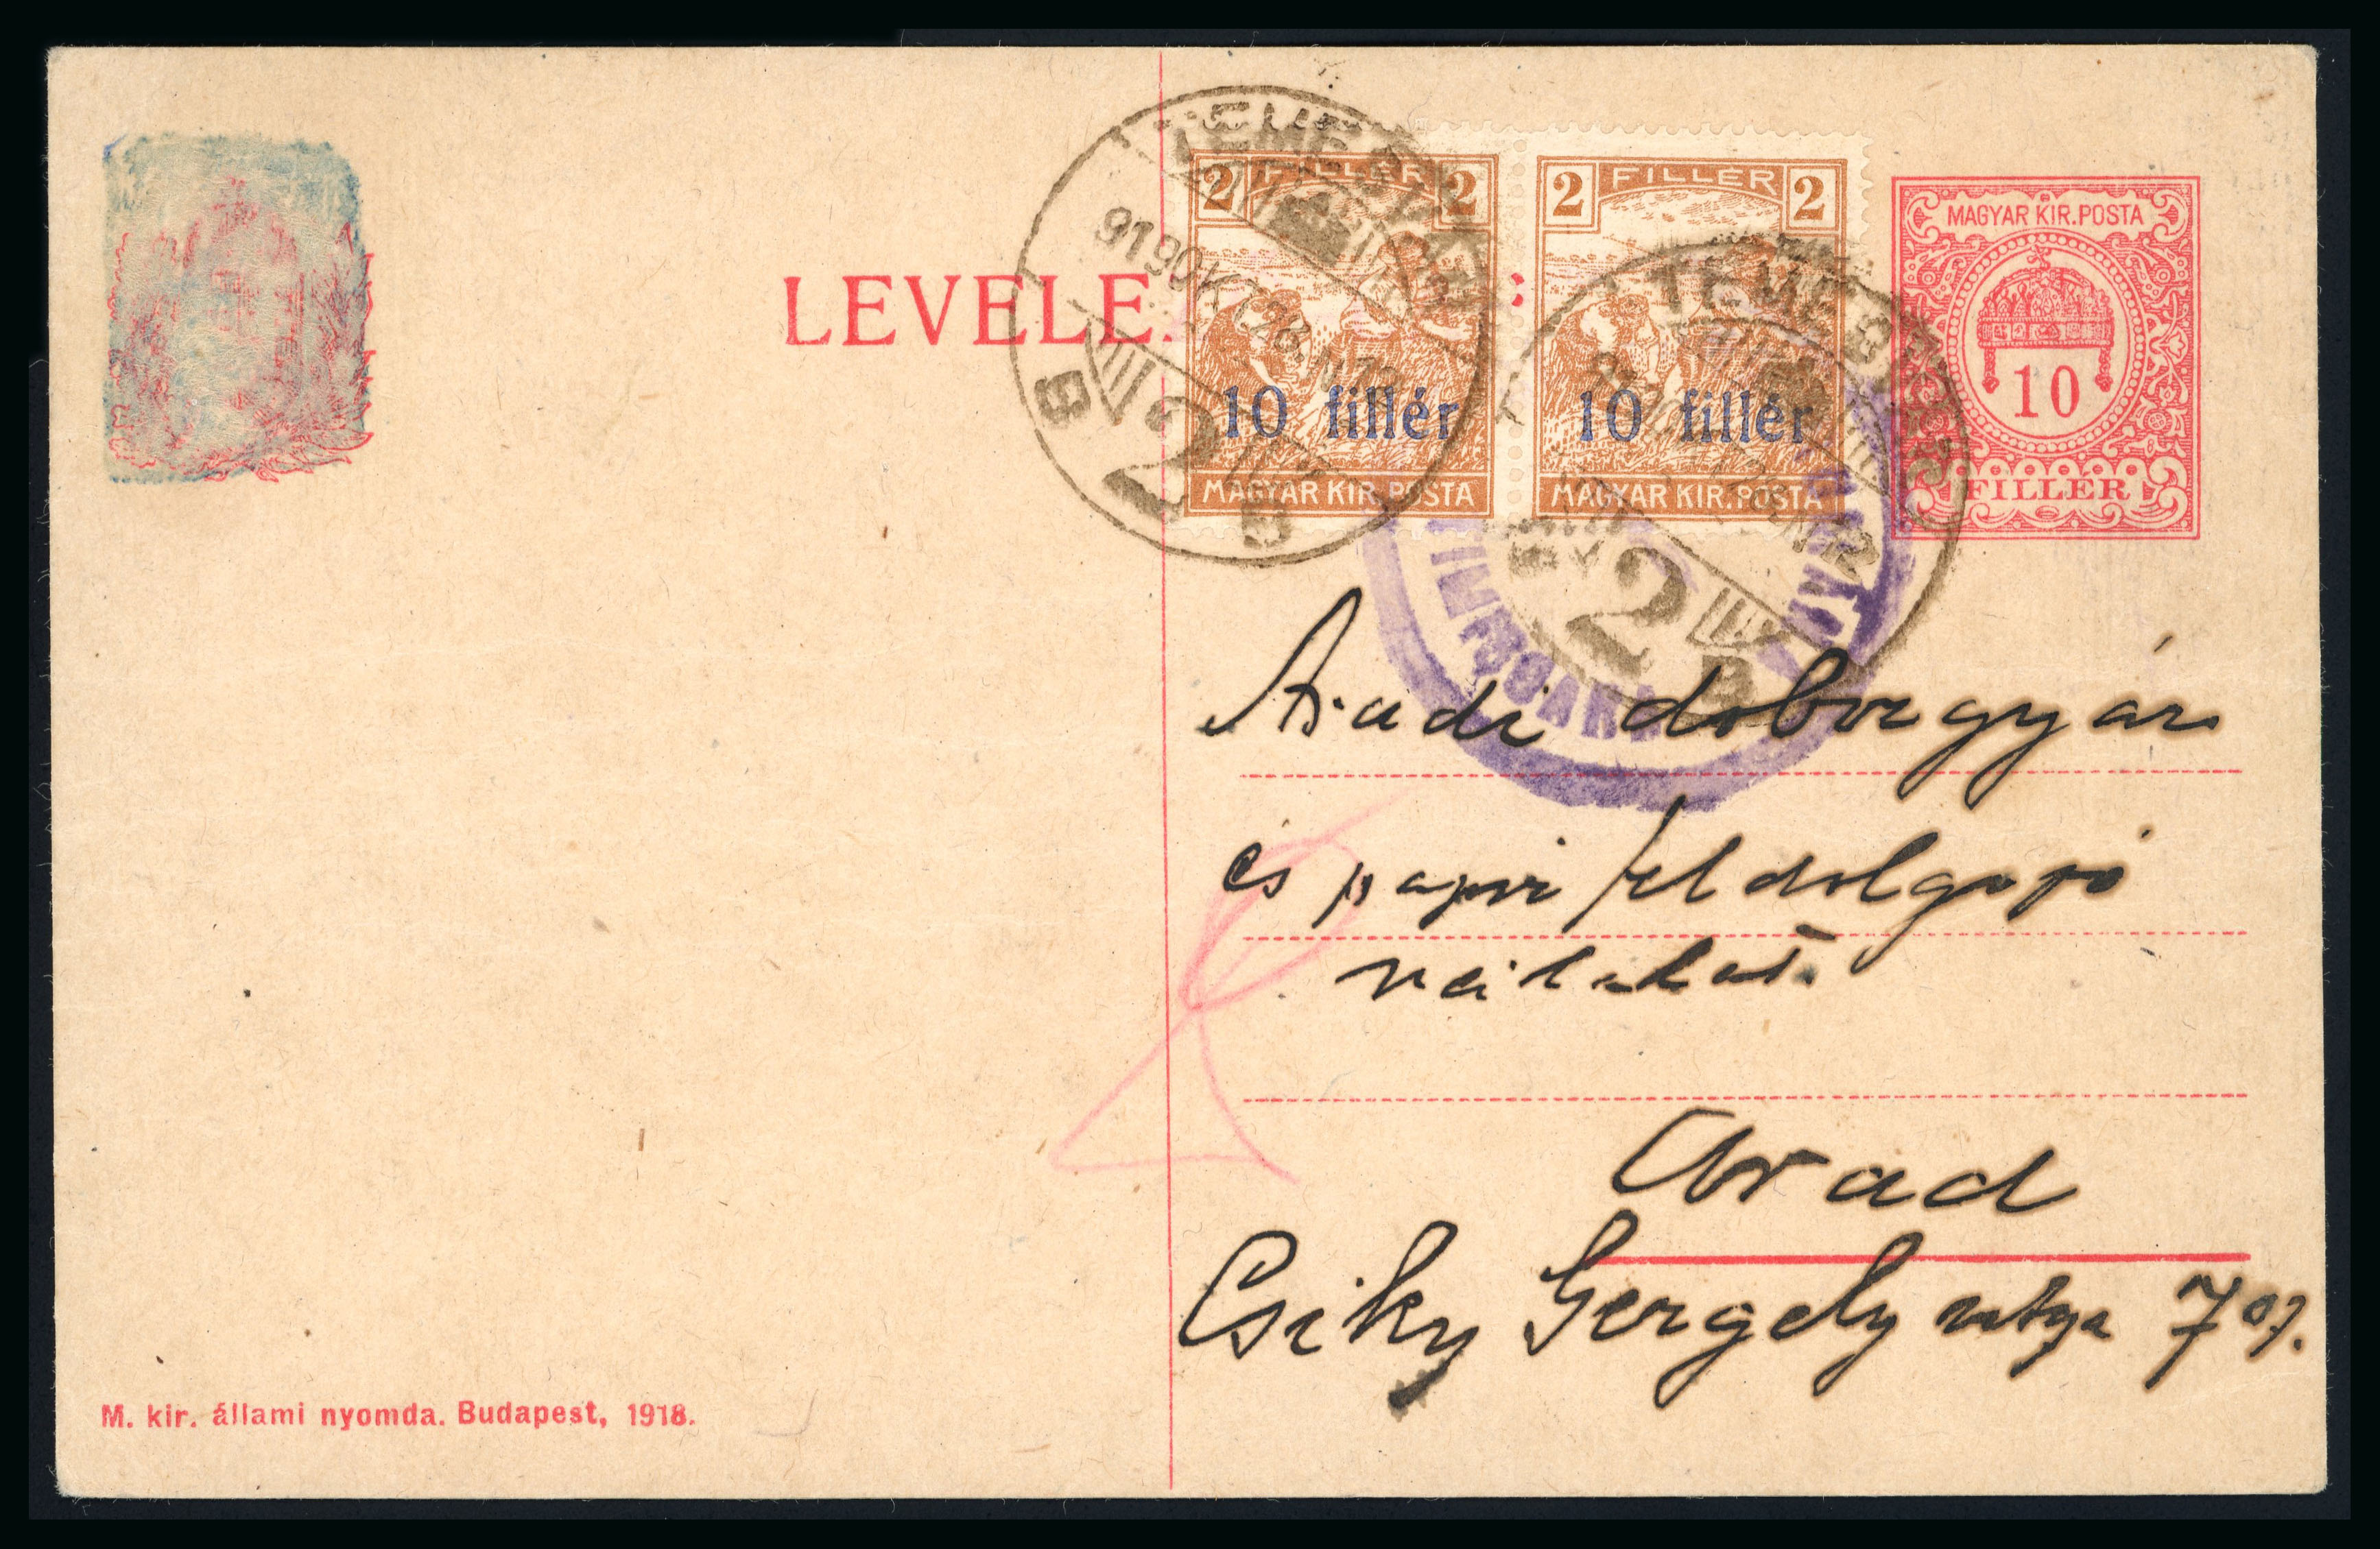 LEVELE
2 FILLÉR 2
10 fillér
MAGYAR KIR. POSTA
2 FILLÉR 2
10 fillér
MAGYAR KIR. POSTA
MAGYAR KIR. POSTA
10
FILLÉR
TEMESV
919 OKT 28. N12
2
B
TEMESV
2
B
TIMIȘOARA
Aradi dobozgyár
és papir feldolgozó
vállalat
Arad
Csiky Gergely utca 7
M. kir. állami nyomda. Budapest, 1918.